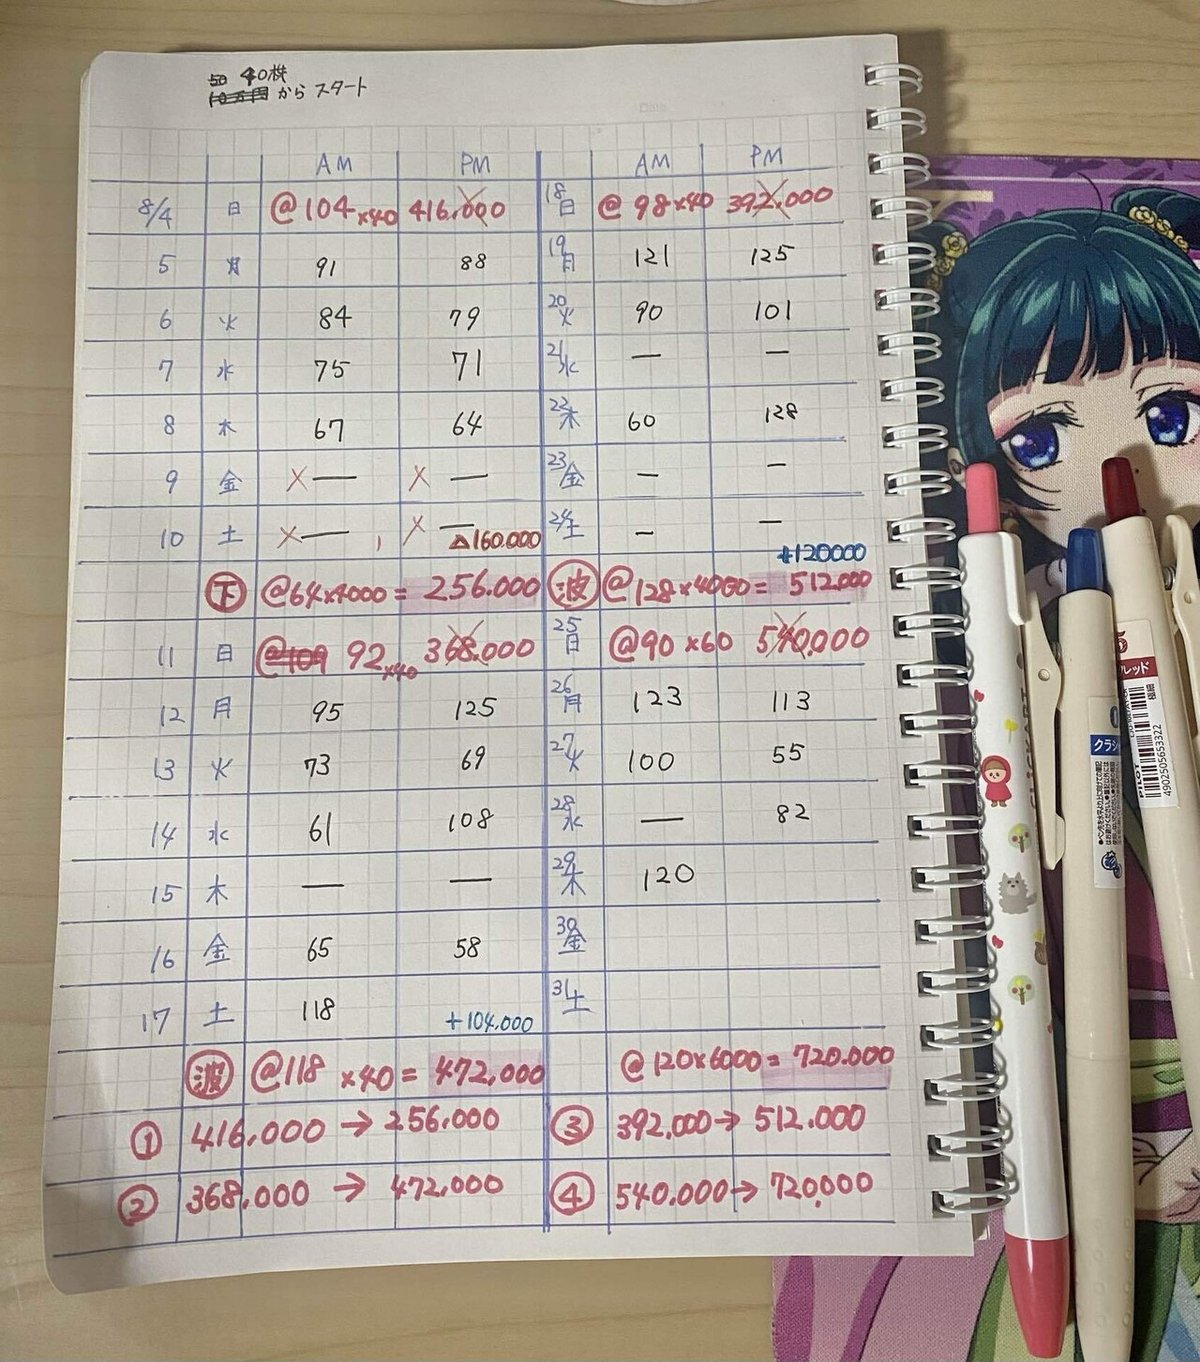 50 40株
10万円 から スタート
Date
AM PM AM PM
8/4 日 @104×40 416.000 18日 @98×40 392.000
5 月 91 88 19月 121 125
6 火 84 79 20火 90 101
7 水 75 71 21水 — —
8 木 67 64 22木 60 128
9 金 ×— ×— 23金 — —
10 土 ×— ×— △160.000 24土 — — +120000
下 @64×4000 = 256.000 波 @128×4000 = 512.000
11 日 @109 92×40 368.000 25日 @90×60 540.000
12 月 95 125 26月 123 113
13 火 73 69 27火 100 55
14 水 61 108 28水 — 82
15 木 — — 29木 120
16 金 65 58 30金
17 土 118 +104.000 31土
波 @118×40 = 472,000 @120×6000 = 720.000
① 416.000 → 256.000 ③ 392.000→ 512.000
② 368,000 → 472,000 ④ 540.000→ 720,000
CLICKART
クラシ
レッド
PILOT
極細
4902505653322